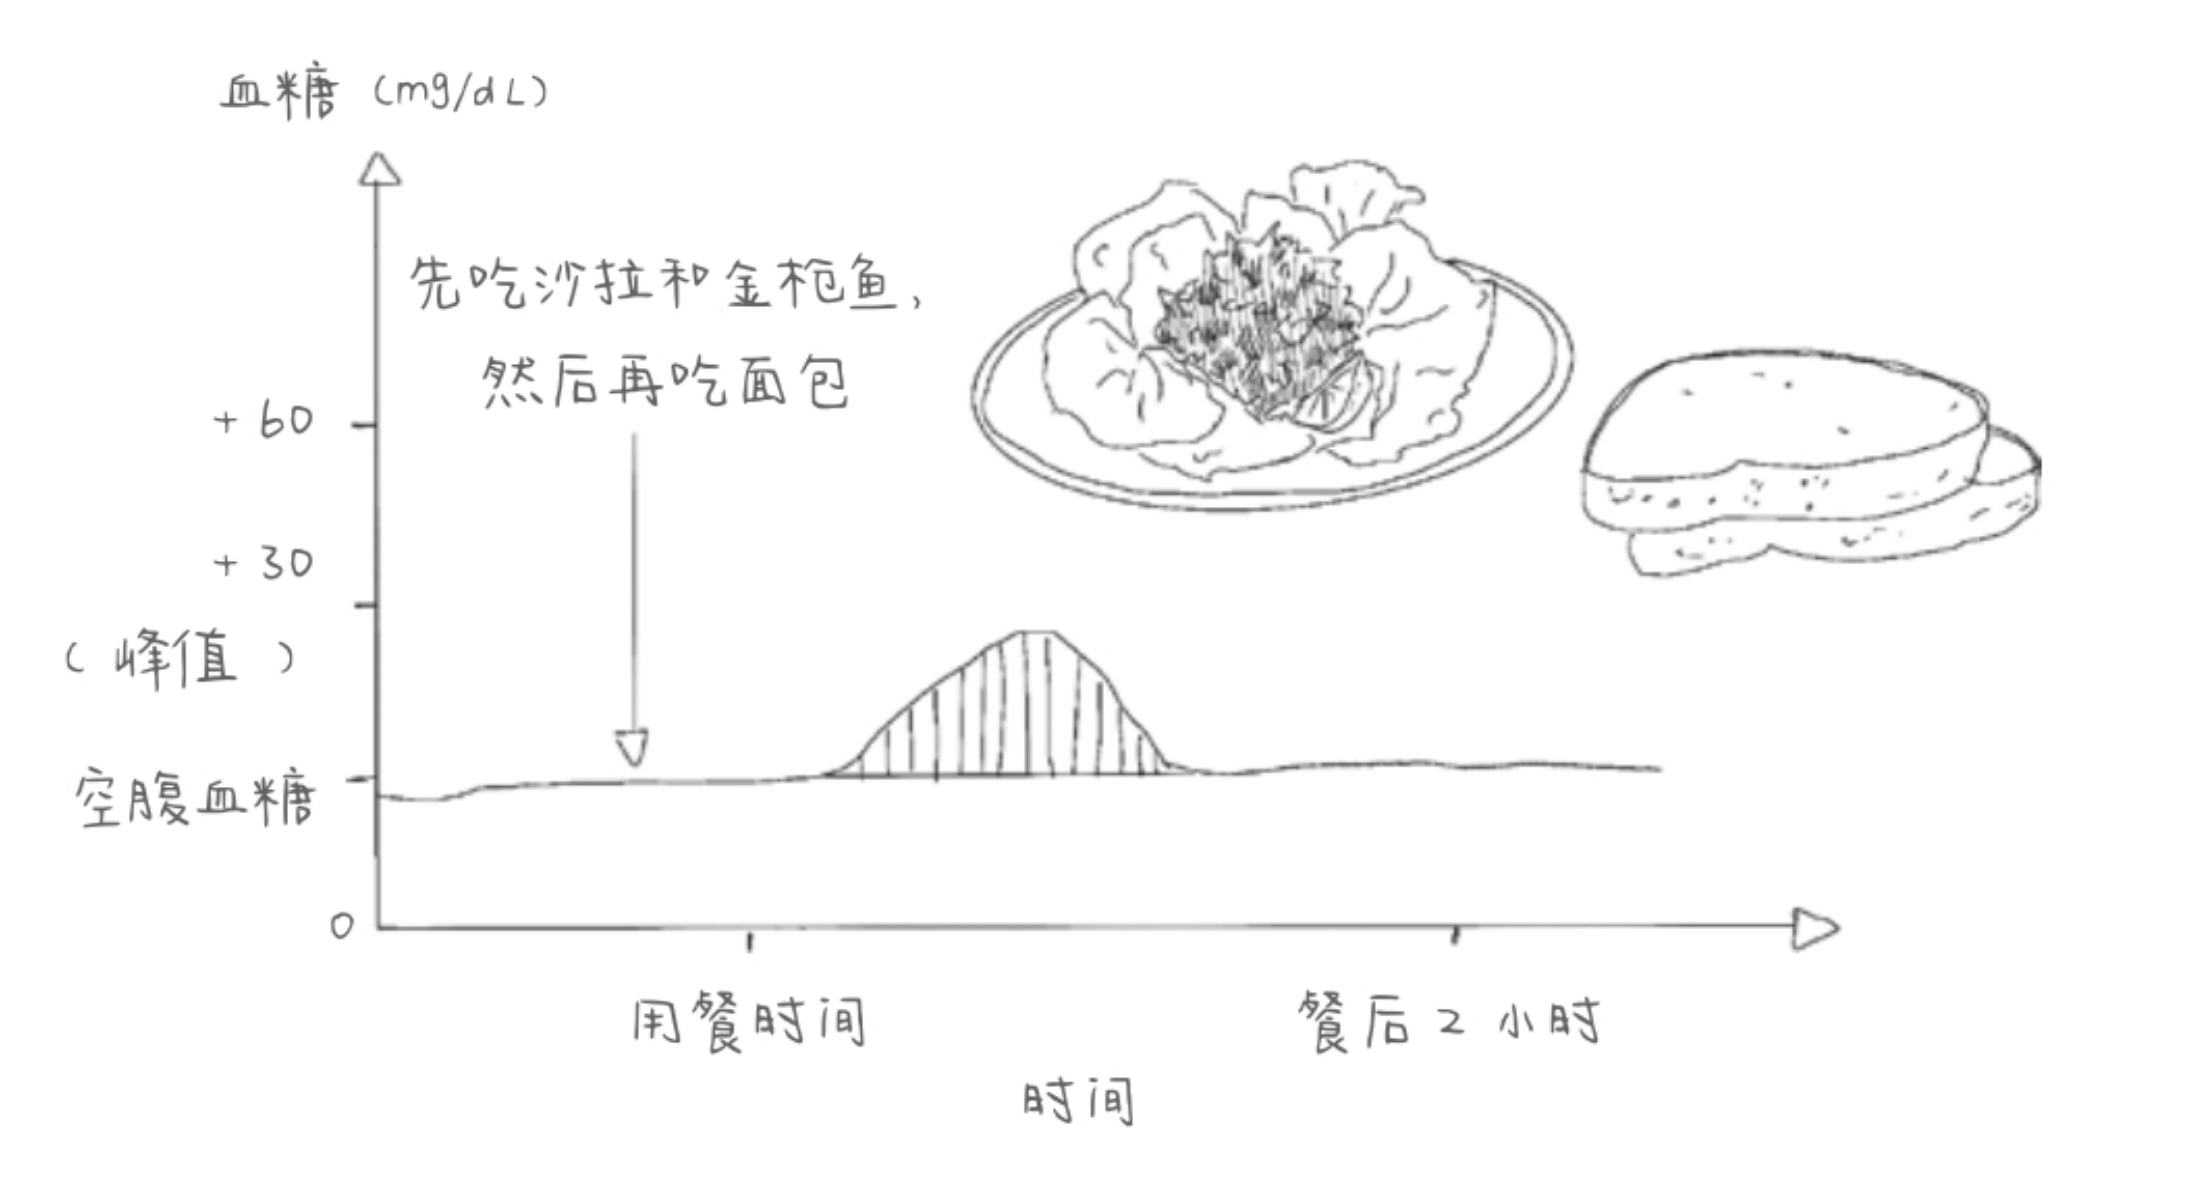 血糖 (mg/dL)
先吃沙拉和金枪鱼,
然后再吃面包
+ 60
+ 30
( 峰值 )
空腹血糖
0
用餐时间
餐后 2 小时
时间